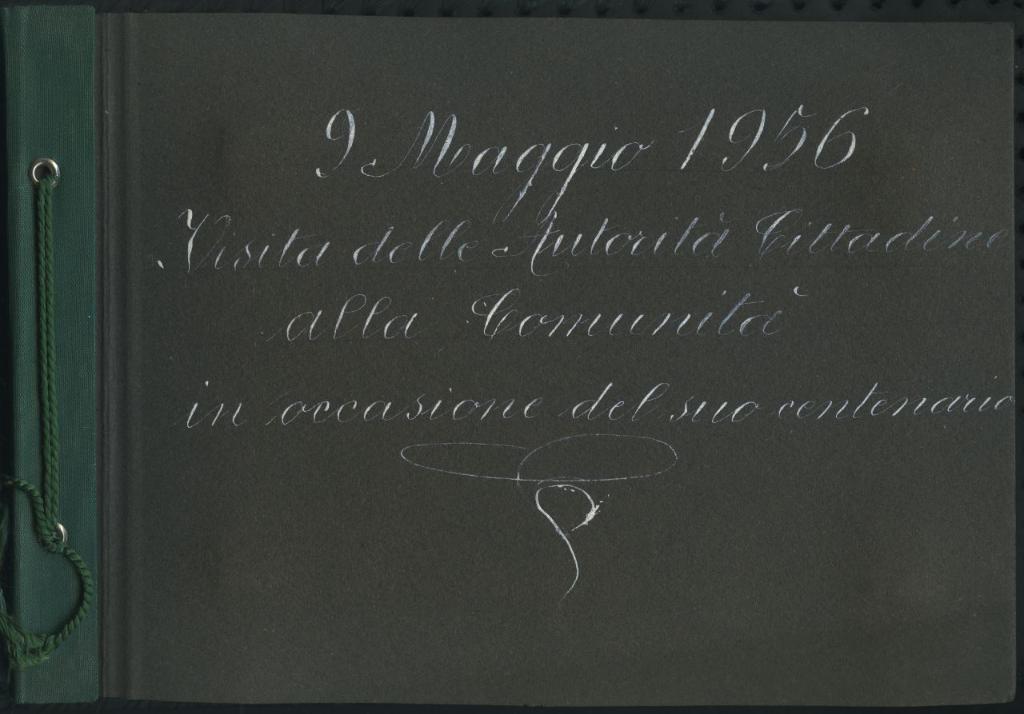 9 Maggio 1956
Visita delle Autorità Cittadine
alla Comunità
in occasione del suo centenario